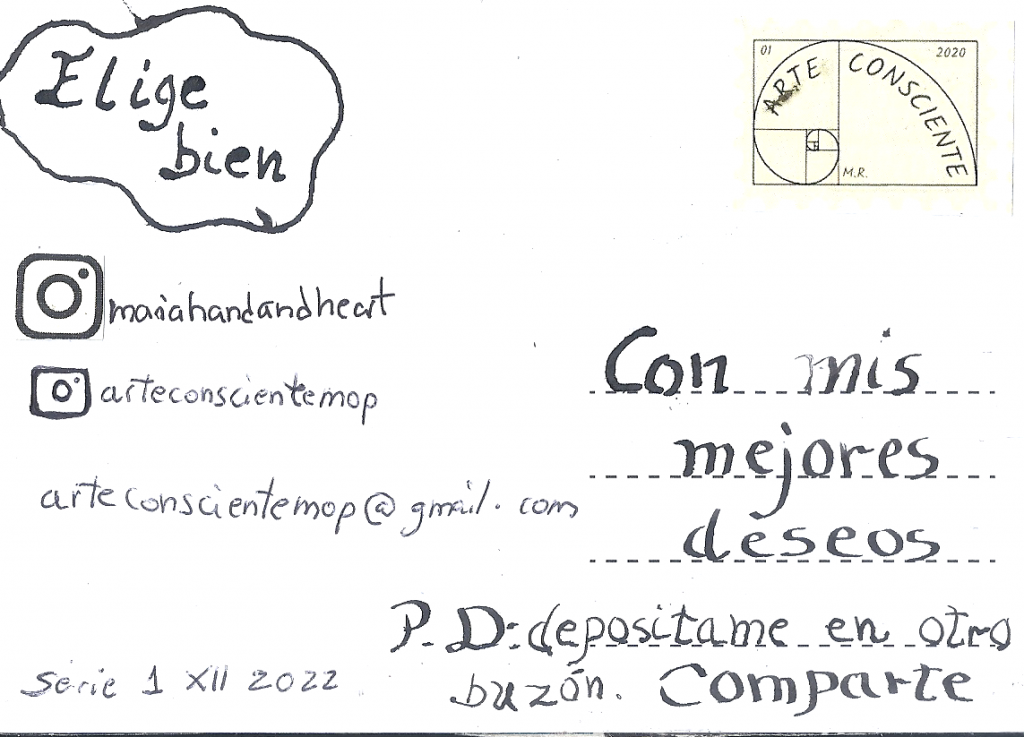 Elige
bien
01
2020
ARTE CONSCIENTE
M.R.
mariahandandheart
arteconscientemop
arteconscientemop@gmail.com
Con mis
mejores
deseos
P.D: depositame en otro
buzón. Comparte
Serie 1 XII 2022